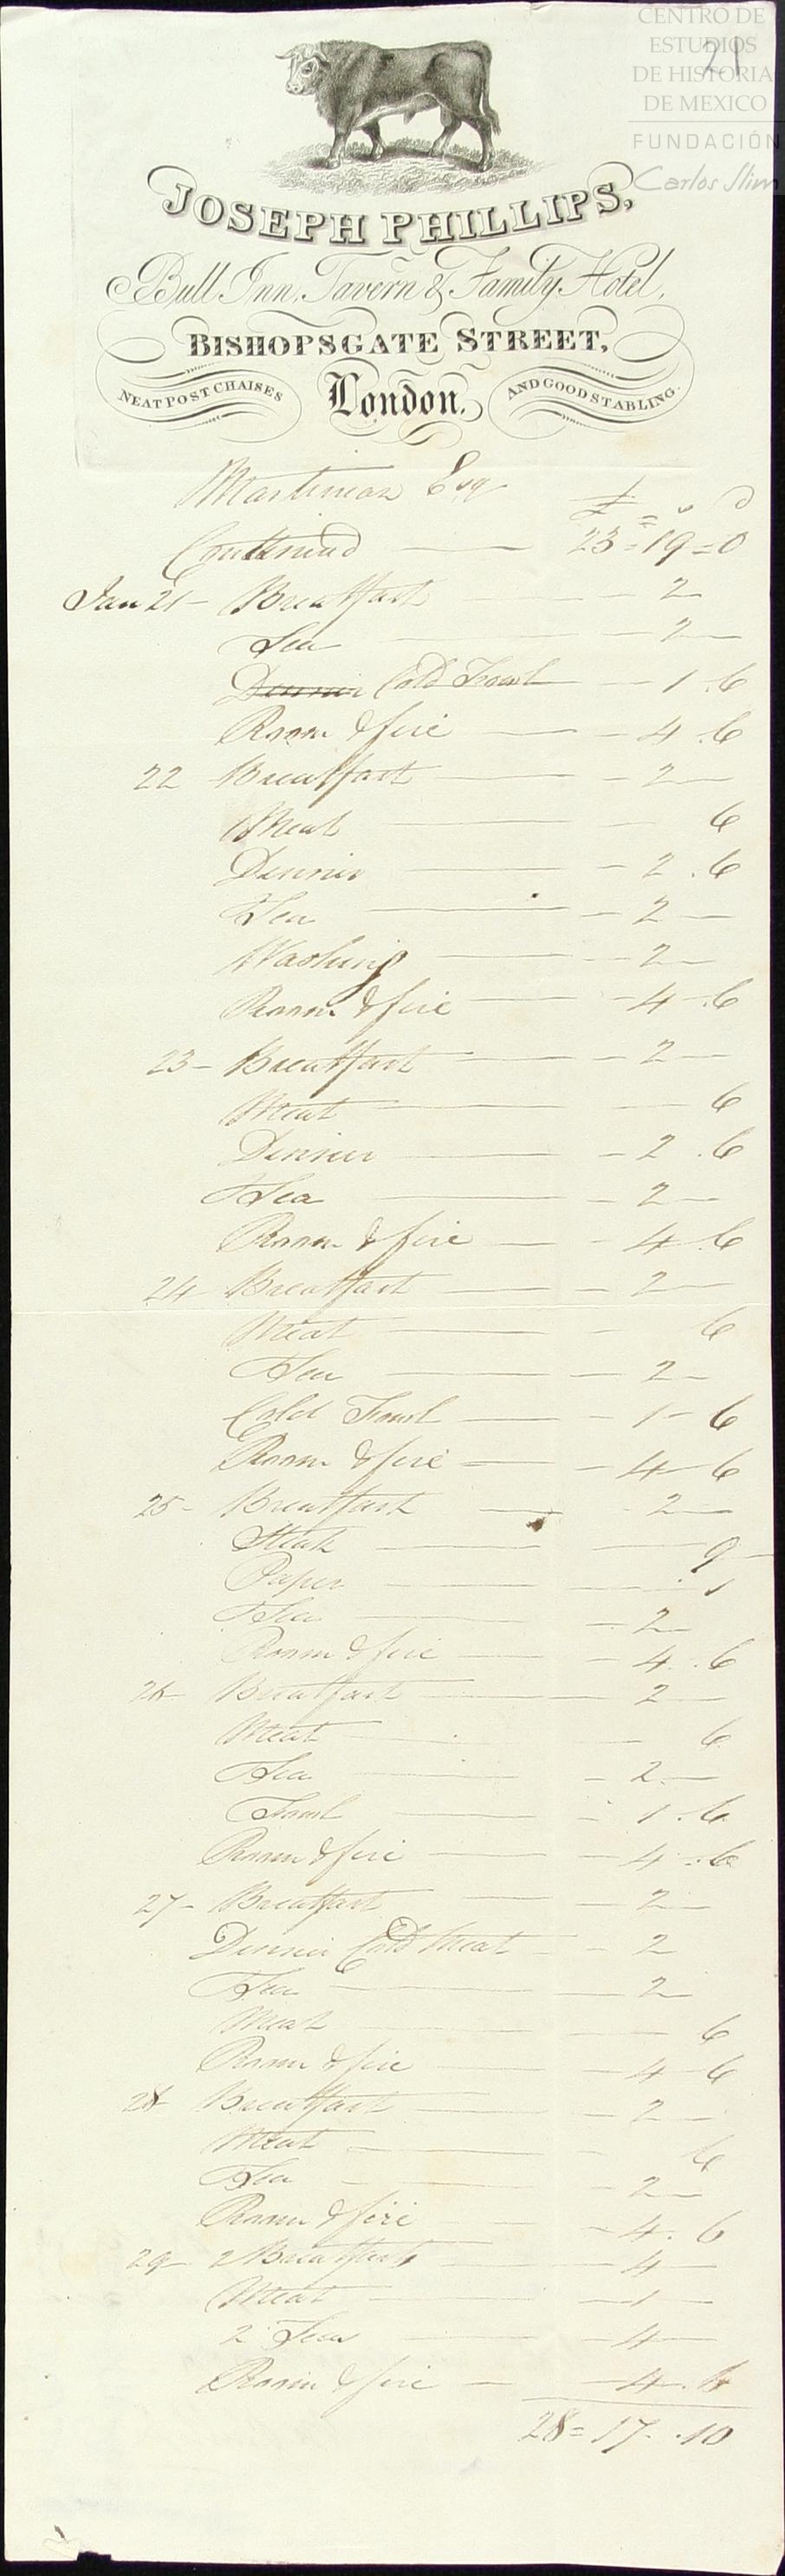 CENTRO DE
ESTUDIOS
DE HISTORIA
DE MEXICO
FUNDACIÓN
Carlos Slim
21
JOSEPH PHILLIPS,
Bull Inn, Tavern & Family Hotel,
BISHOPSGATE STREET,
NEAT POST CHAISES London. AND GOOD STABLING.
Esq
£ s d
Continued — 23=19=0
Jan 21 - Breakfast — 2
Tea — 2 —
Dinner Cold Fowl — 1.6
Room & fire — 4.6
22 Breakfast — 2 —
Meat — 6
Dinnir — 2.6
Tea — 2 —
Washing — 2 —
Room & fire — 4.6
23 - Breakfast — 2 —
Meat — 6
Dinnir — 2.6
Tea — 2 —
Room & fire — 4.6
24 Breakfast — 2 —
Meat — 6
Tea — 2 —
Cold Fowl — 1 - 6
Room & fire — 4 - 6
25 - Breakfast — 2 —
Steak — 9
Paper — 1
Tea — 2 —
Room & fire — 4.6
26 Breakfast — 2 —
Meat — 6
Tea — 2 —
Fowl — 1.6
Room & fire — 4.6
27 - Breakfast — 2 —
Dinnir Cold Meat — 2
Tea — 2 —
Meat — 6
Room & fire — 4 - 6
28 Breakfast — 2 —
Meat — 6
Tea — 2 —
Room & fire — 4.6
29 - 2 Breakfasts — 4 —
Meat — 1 —
2 Teas — 4 —
Room & fire — 4.6
28=17.10